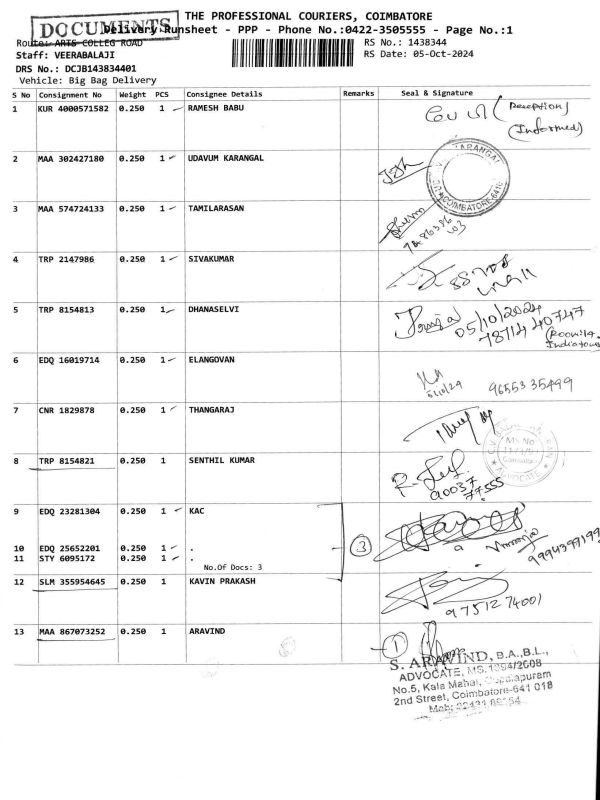 DOCUMENTS
THE PROFESSIONAL COURIERS, COIMBATORE
Delivery Runsheet - PPP - Phone No.:0422-3505555 - Page No.:1
Route: ARTS COLLEG ROAD
RS No.: 1438344
Staff: VEERABALAJI
RS Date: 05-Oct-2024
DRS No.: DCJB143834401
Vehicle: Big Bag Delivery
S No Consignment No Weight PCS Consignee Details Remarks Seal & Signature
1 KUR 4000571582 0.250 1 RAMESH BABU (Reception)
(Informed)
2 MAA 302427180 0.250 1 UDAVUM KARANGAL
COIMBATORE
3 MAA 574724133 0.250 1 TAMILARASAN
4 TRP 2147986 0.250 1 SIVAKUMAR
5 TRP 8154813 0.250 1 DHANASELVI 05/10/2024
78714 40747
6 EDQ 16019714 0.250 1 ELANGOVAN 9655335499
7 CNR 1829878 0.250 1 THANGARAJ
ADVOCATE
8 TRP 8154821 0.250 1 SENTHIL KUMAR
90037
77555
9 EDQ 23281304 0.250 1 KAC
10 EDQ 25652201 0.250 1 . 3
11 STY 6095172 0.250 1 .
No.Of Docs: 3
12 SLM 355954645 0.250 1 KAVIN PRAKASH
9751274001
13 MAA 867073252 0.250 1 ARAVIND 1
S. ARAVIND, B.A.,B.L.,
ADVOCATE, MS. 1894/2008
No.5, Kala Mahal, Gopalapuram
2nd Street, Coimbatore-641 018